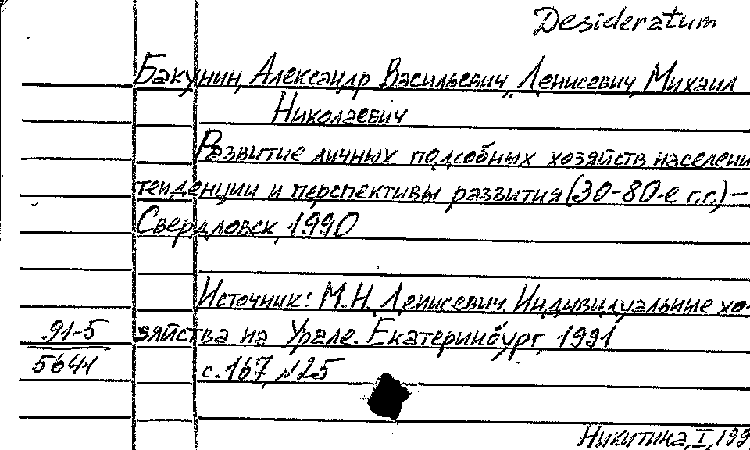 Desideratum
Бакунин, Александр Васильевич, Денисевич, Михаил
Николаевич
Развитие личных подсобных хозяйств населени
тенденции и перспективы развития (30-80-е г.г.) –
Свердловск, 1990
Источник: М.Н. Денисевич. Индивидуальные хо-
91-5 зяйства на Урале. Екатеринбург, 1991
5641 с. 167, №25
Никитина, I, 199